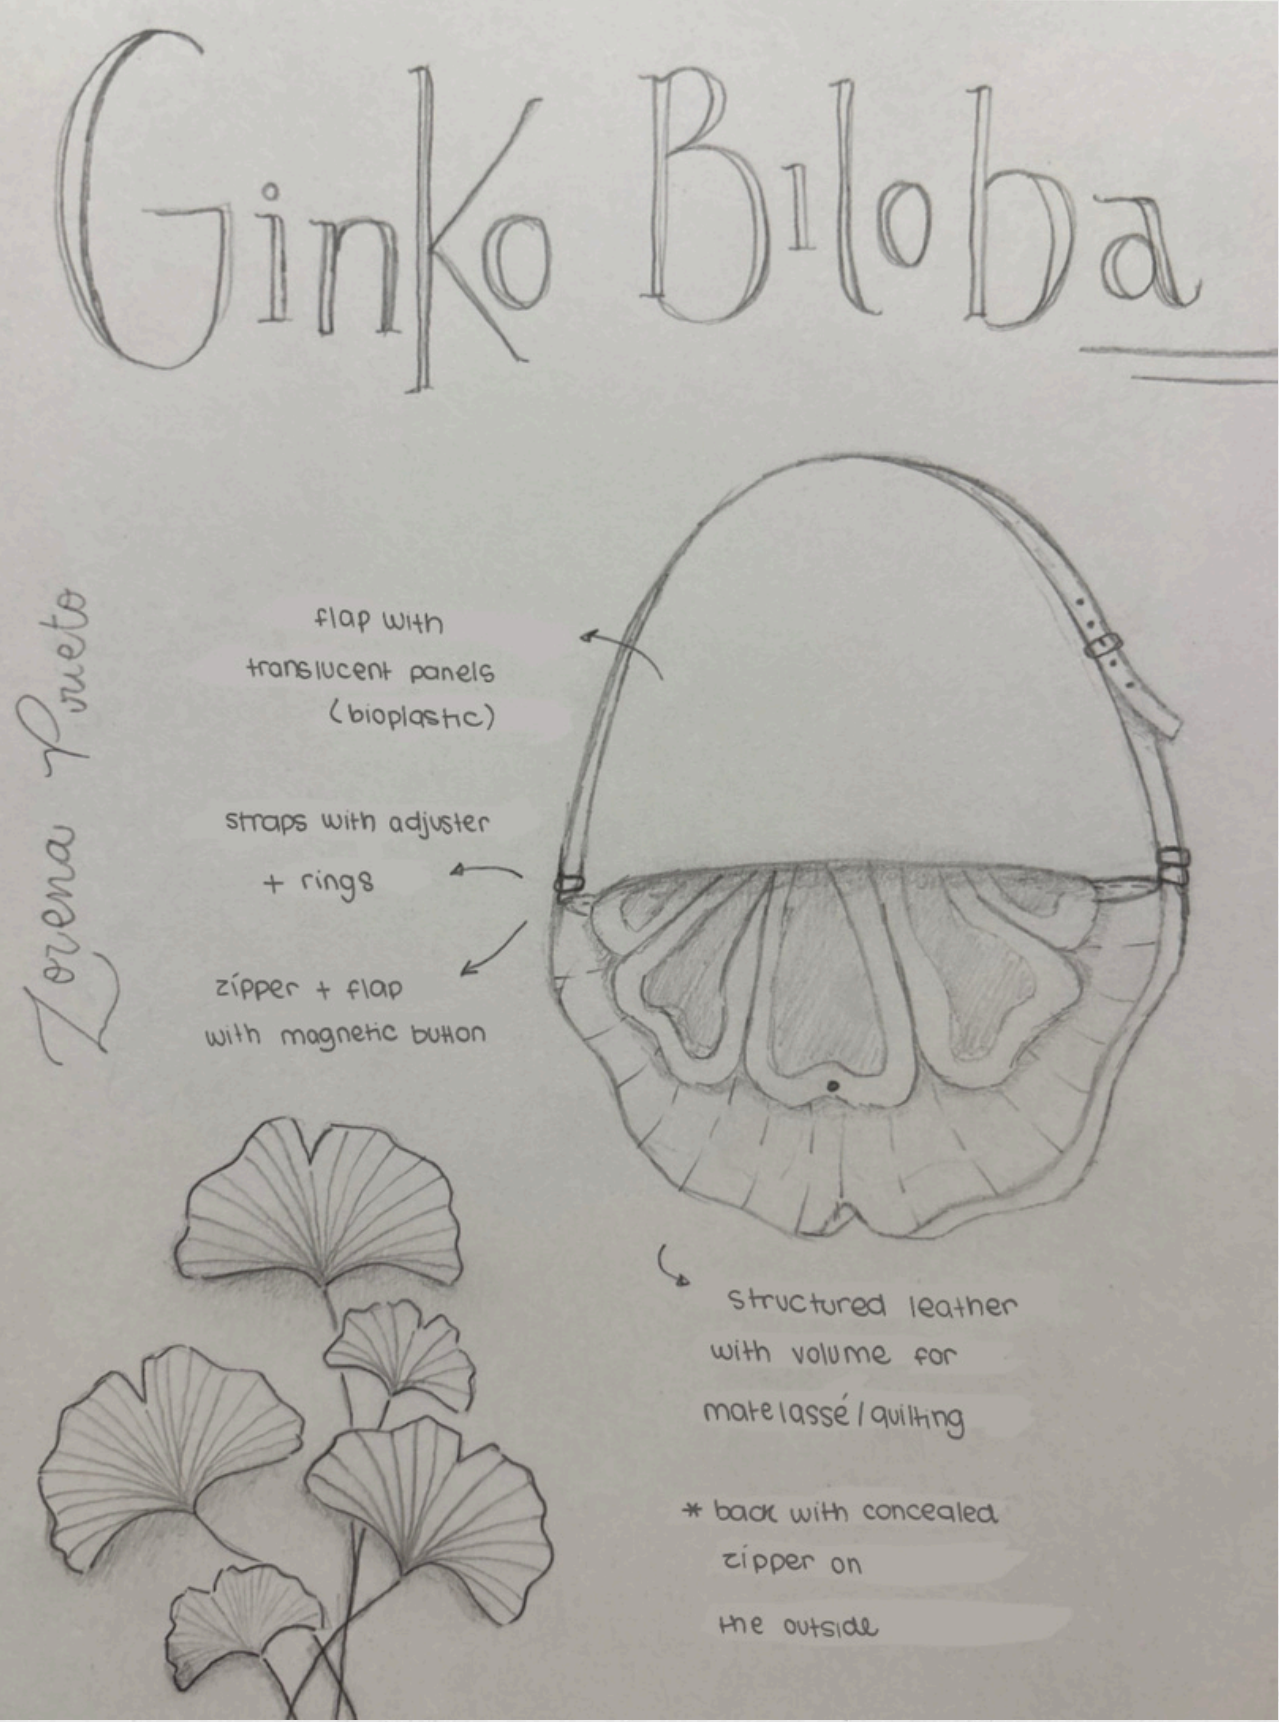 Ginko Biloba
Lorena Prieto
flap with
translucent panels
(bioplastic)
straps with adjuster
+ rings
zipper + flap
with magnetic button
structured leather
with volume for
matelassé/quilting
* back with concealed
zipper on
the outside